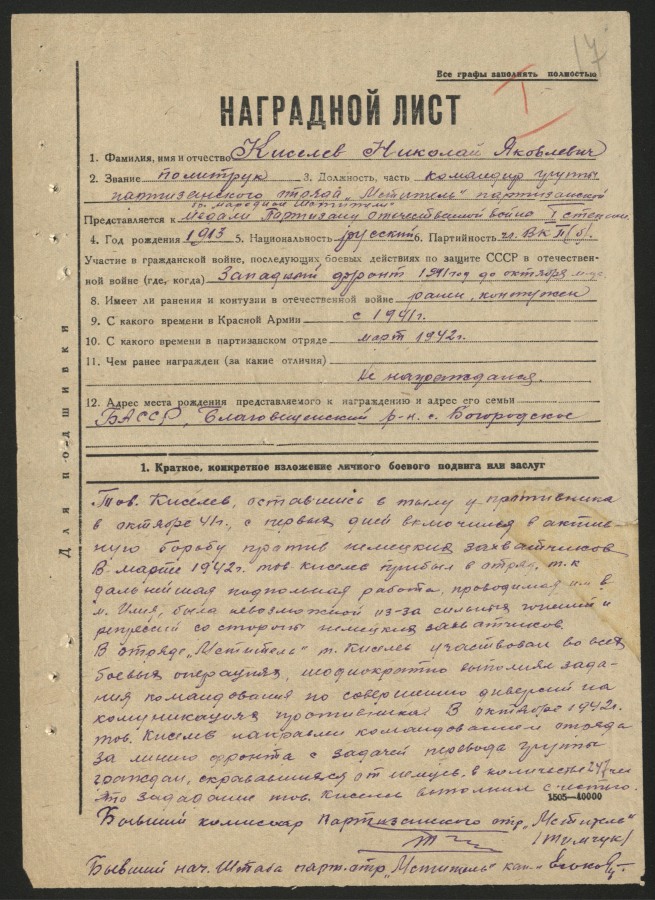 17
Все графы заполнять полностью
НАГРАДНОЙ ЛИСТ
1. Фамилия, имя и отчество Киселев Николай Яковлевич
2. Звание политрук 3. Должность, часть командир группы
партизанского отряда „Мститель" партизанской
бр. Народные Мстители
Представляется к медали Партизану отечественной войны I степени
4. Год рождения 1913 5. Национальность русский 6. Партийность чл. ВКП(б).
Участие в гражданской войне, последующих боевых действиях по защите СССР в отечествен-
ной войне (где, когда) Западный фронт 1941 год до октября м-ца
8. Имеет ли ранения и контузии в отечественной войне ранен, контужен
9. С какого времени в Красной Армии с 1941г.
10. С какого времени в партизанском отряде март 1942г.
11. Чем ранее награжден (за какие отличия)
Не награждался.
12. Адрес места рождения представляемого к награждению и адрес его семьи
БАССР, Благовещенский р-н с. Богородское
Для подшивки
1. Краткое, конкретное изложение личного боевого подвига или заслуг
Тов. Киселев, оставшись в тылу у противника
в октябре 41г., с первых дней включился в актив-
ную борьбу против немецких захватчиков
В марте 1942г. тов Киселев прибыл в отряд, т.к
дальнейшая подпольная работа, проводимая им в
м. Илия, была невозможной из-за сильных гонений и
репрессий со стороны немецких захватчиков.
В отряде „Мститель" т. Киселев участвовал во всех
боевых операциях, неоднократно выполнял зада-
ния командования по совершению диверсий на
коммуникациях противника. В октябре 1942г.
тов. Киселев направлен командованием отряда
за линию фронта с задачей перевода группы
граждан, скрававшихся от немцев, в количестве 247 чел
Это задание тов. Киселев выполнил с честью.
1505—10000
Бывший комиссар Партизанского отр. „Мститель"
/Тимчук/
Бывший нач. Штаба парт. отр. „Мститель" кап-н